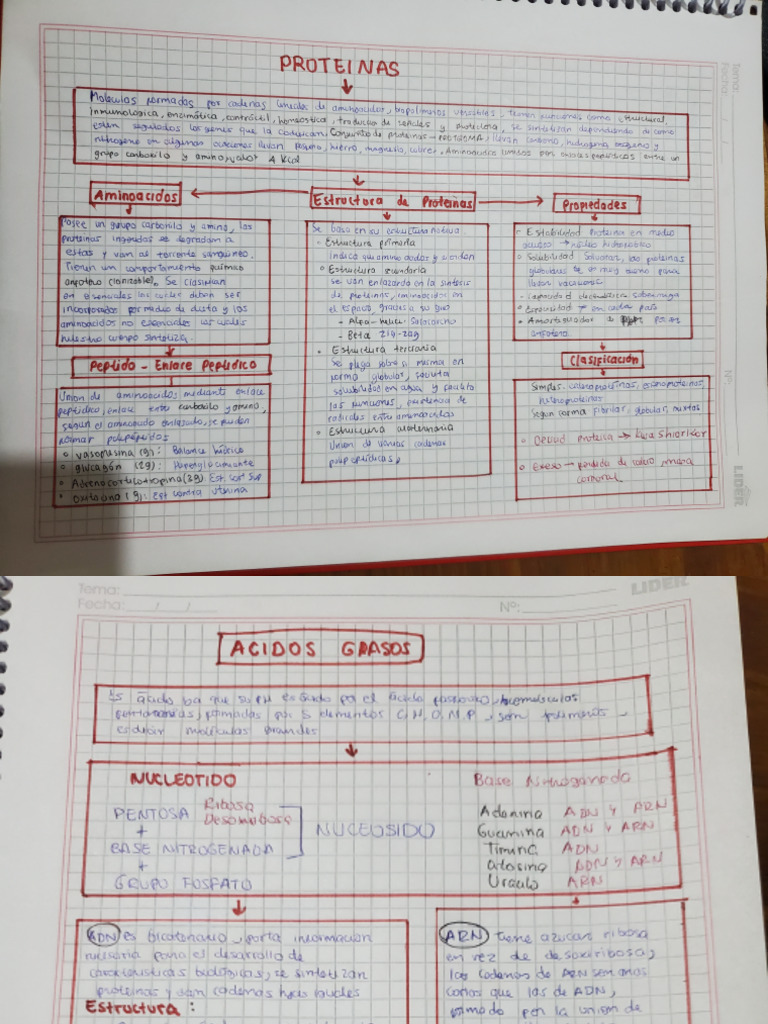 Tema:
Fecha:
Nº
LIDER
PROTEINAS
Moleculas formadas por cadenas lineales de aminoacidos, biopolimeros versatiles, tienen funciones como estructural,
inmunologica, enzimatica, contráctil, homeostica, traductor de señales y protectora, se sintetizan dependiendo de como
esten regulados los genes que la codifican, Conjunto de proteinas → PROTEOMA, llevan carbono, hidrogeno, oxigeno y
nitrogeno en algunas ocasiones llevan fosforo, hierro, magnesio, cobre, Aminoacidos unidos por enlaces peptidicos entre un
grupo carboxilo y amino, valor 4 Kcal
Aminoacidos
Estructura de Proteinas
Propiedades
Posee un grupo carboxilo y amino, las
proteinas ingeridas se degradan a
estas y van al torrente sanguineo.
Tienen un comportamiento quimico
anfotero (ionizable). Se clasifican
en esenciales los cuales deben ser
incorporados por medio de dieta y los
aminoacidos no esenciales los cuales
nuestro cuerpo sintetiza.
Peptido - Enlace Peptidico
Union de aminoacidos mediante enlace
peptidico, enlace entre carboxilo y amino,
según el aminoacido enlazado, se pueden
formar polipeptidos
Vasopresina (9): Balance hidrico
glucagón (29): Hiperglucemiante
Adrenocorticotropina (39): Est. Cost Sup
Oxitocina (9): Est contra uterina
Se basa en su estructura nativa.
Estructura primaria
Indica que aminoacidos y orden
Estructura secundaria
se van enlazando en la sintesis
de proteinas, aminoacidos en
el espacio, gracias a su giro
- Alfa-helice:
- Beta
Estructura terciaria
Se pliega sobre si misma en
forma globular, facilita
solubilidad en agua y facilita
las funciones, existencia de
radicales entre aminoacidos
Estructura cuaternaria
Union de varias cadenas
polipeptidicas,
Estabilidad Proteina en medio
acuoso → nucleo hidrofobico
Solubilidad Solvatar, las proteinas
globulares es muy bueno para
llevar vacunas.
Capacidad electrolitica
Especificidad → en cada
Amortiguador de pH por ser
anfotero.
Clasificación
Simples:
heteroproteinas
Segun forma Fibrilar, globular, mixtas
Deficid proteina → Kwashiorkor
Exceso → perdida de calcio, masa
corporal.
Tema:
Fecha: / /
Nº:
LIDER
ACIDOS GRASOS
Es ácido ya que su PH es ácido por el ácido fosforico, biomoleculas
formadas por 5 elementos C.H.O.N.P, son polimeros
es decir moleculas grandes
NUCLEOTIDO
Base Nitrogenada
PENTOSA Ribosa
Desoxirribosa
+
BASE NITROGENADA
+
GRUPO FOSFATO
NUCLEOSIDO
Adenina ADN Y ARN
Guanina ADN Y ARN
Timina ADN
Citosina ADN Y ARN
Uracilo ARN
ADN es bicatenario, porta informacion
necesaria para el desarrollo de
caracteristicas biologicas, se sintetizan
proteinas y son cadenas
Estructura:
ARN tiene azucar ribosa
en vez de desoxirribosa,
las cadenas de ARN son mas
cortas que las de ADN,
formado por la union de